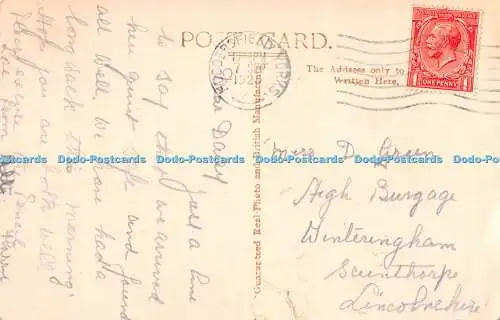 POST CARD.
HUDDERSFIELD YORKS
192
ONE PENNY
The Address only to
Written Here.
Guaranteed Real Photo and British Manufacture
Dear Daisy Just a line
to say that we arrived
here quite safe and found
all well. We have had a
long walk this morning.
Hope you are both well
Please excuse
love from
Miss D. Green
High Burgage
Winteringham
Scunthorpe
Lincolnshire
Dodo-Postcards Dodo-Postcards Dodo-Postcards Dodo-Postcards Dodo-Postcards